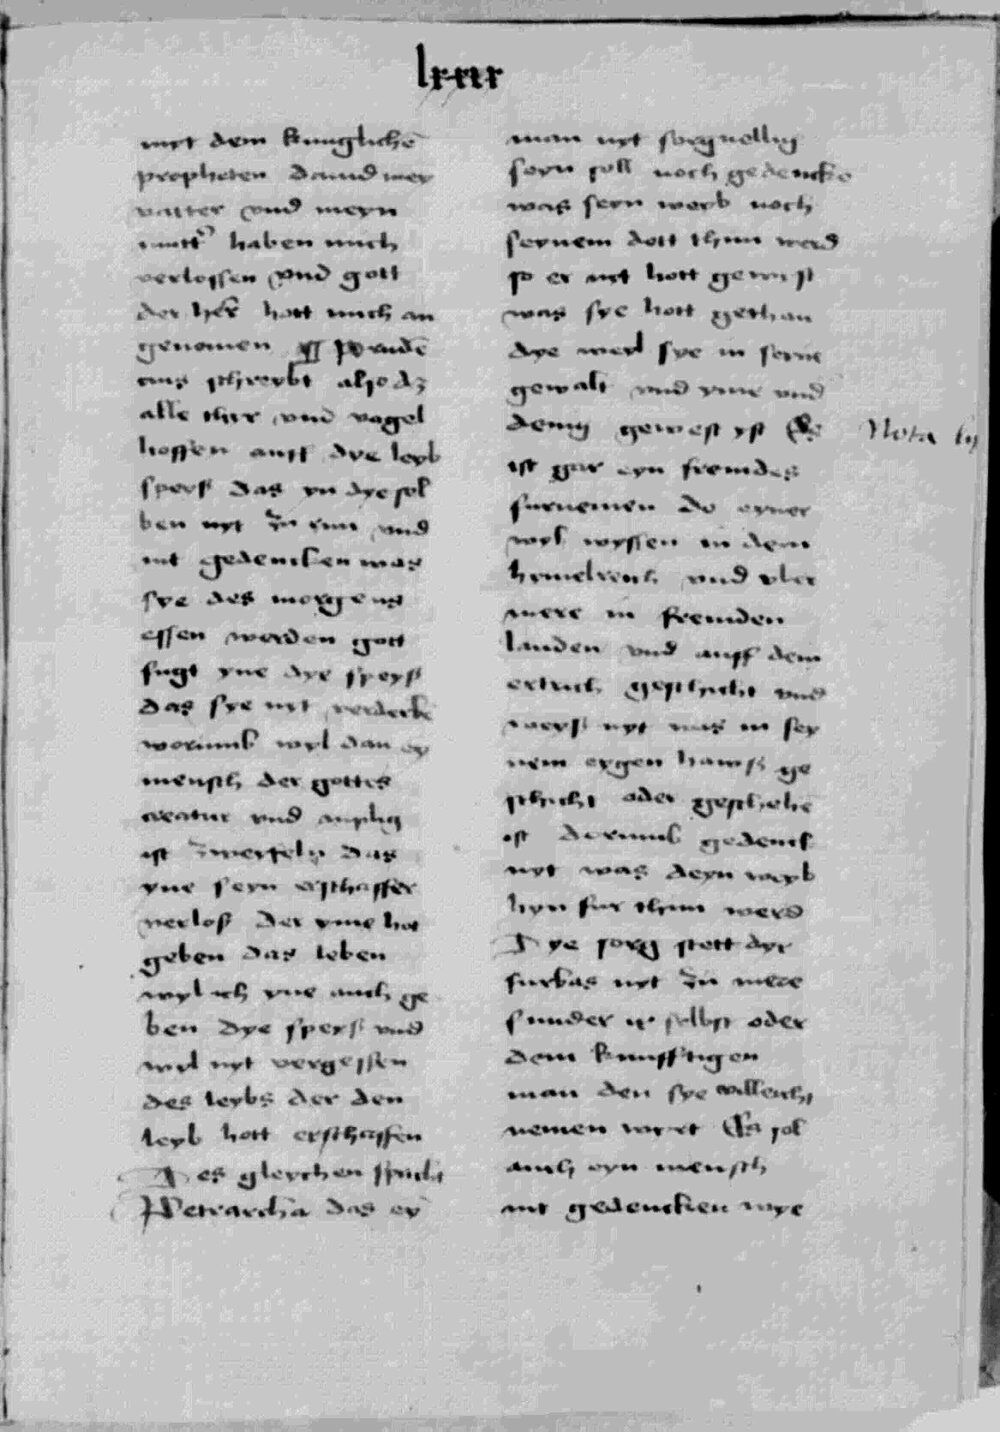 lxxix
myt dem kunglichē
propheten dauid mey
vatter vnd meyn
mutt' haben mich
verlossen vnd gott
der her hott mich an
genomen ¶ prudē
cius schreybt also dz
alle thyr vnd vogel
hoffen auff dye leyb
speyß das yn dye sel
ben nyt zu rin vnd
nit gedencken was
sye des morgens
essen werden gott
fugt yne dye speyß
das sye nyt verderbē
worumb wyl dan ey
mensch der gottes
creatur vnd
ist zweyfeln das
yne seyn erschaffer
verloß der yme hot
geben das leben
wyl ich yne auch ge
ben dye speyß vnd
wyl nyt vergessen
des leybs der den
leyb hott erschaffen
Des gleychen spricht
Petrarcha das ey
man nyt sorguellig
seyn soll noch gedencke
was seyn weyb noch
seynem dott thun werd
so er nyt hott gewust
was sye hott gethan
dye weyl sye in seyne
gewalt vnd yme vnd
denig gewest yst Es
Nota
ist gar eyn fremdes
furnemen do eyner
wyl wyssen in dem
hymelreich vnd vber
mere in fremden
landen vnd auff dem
ertrich geschicht vnd
weyß nyt was in sey
nem eygen hawß ge
schicht oder geschehē
ist dorumb gedenck
nyt was deyn weyb
hyn fur thun werd
Dye sorg stett dyr
furbas nyt zu mere
sunder ir selbst oder
dem kunfftigen
man den sye villeicht
nemen wyrt Es sol
auch eyn mensch
nit gedencken wye